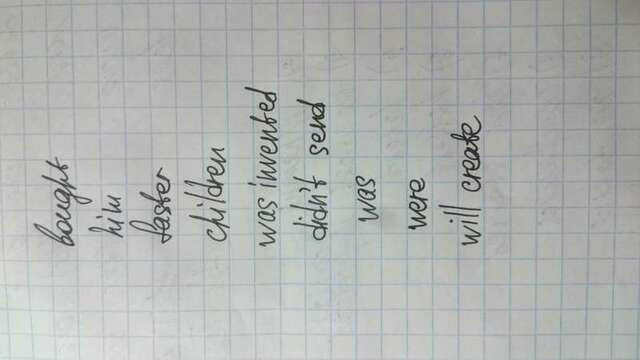 bought
him
faster
children
was invented
didn't send
was
were
will create